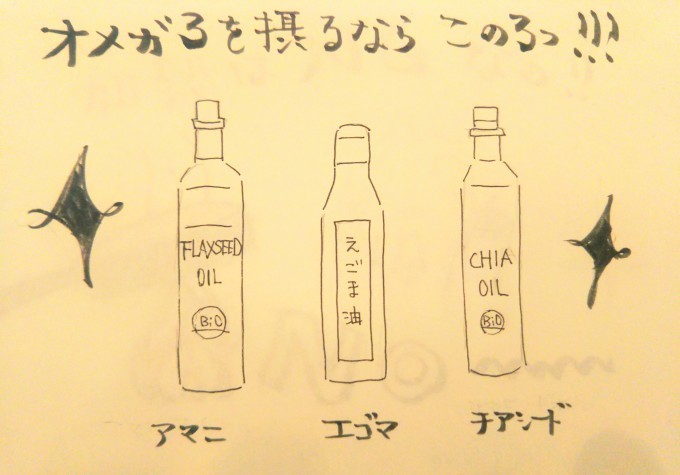 オメガ3を摂るなら この3つ!!!
FLAXSEED
OIL
BiO
えごま油
CHIA
OIL
BiO
アマニ
エゴマ
チアシード